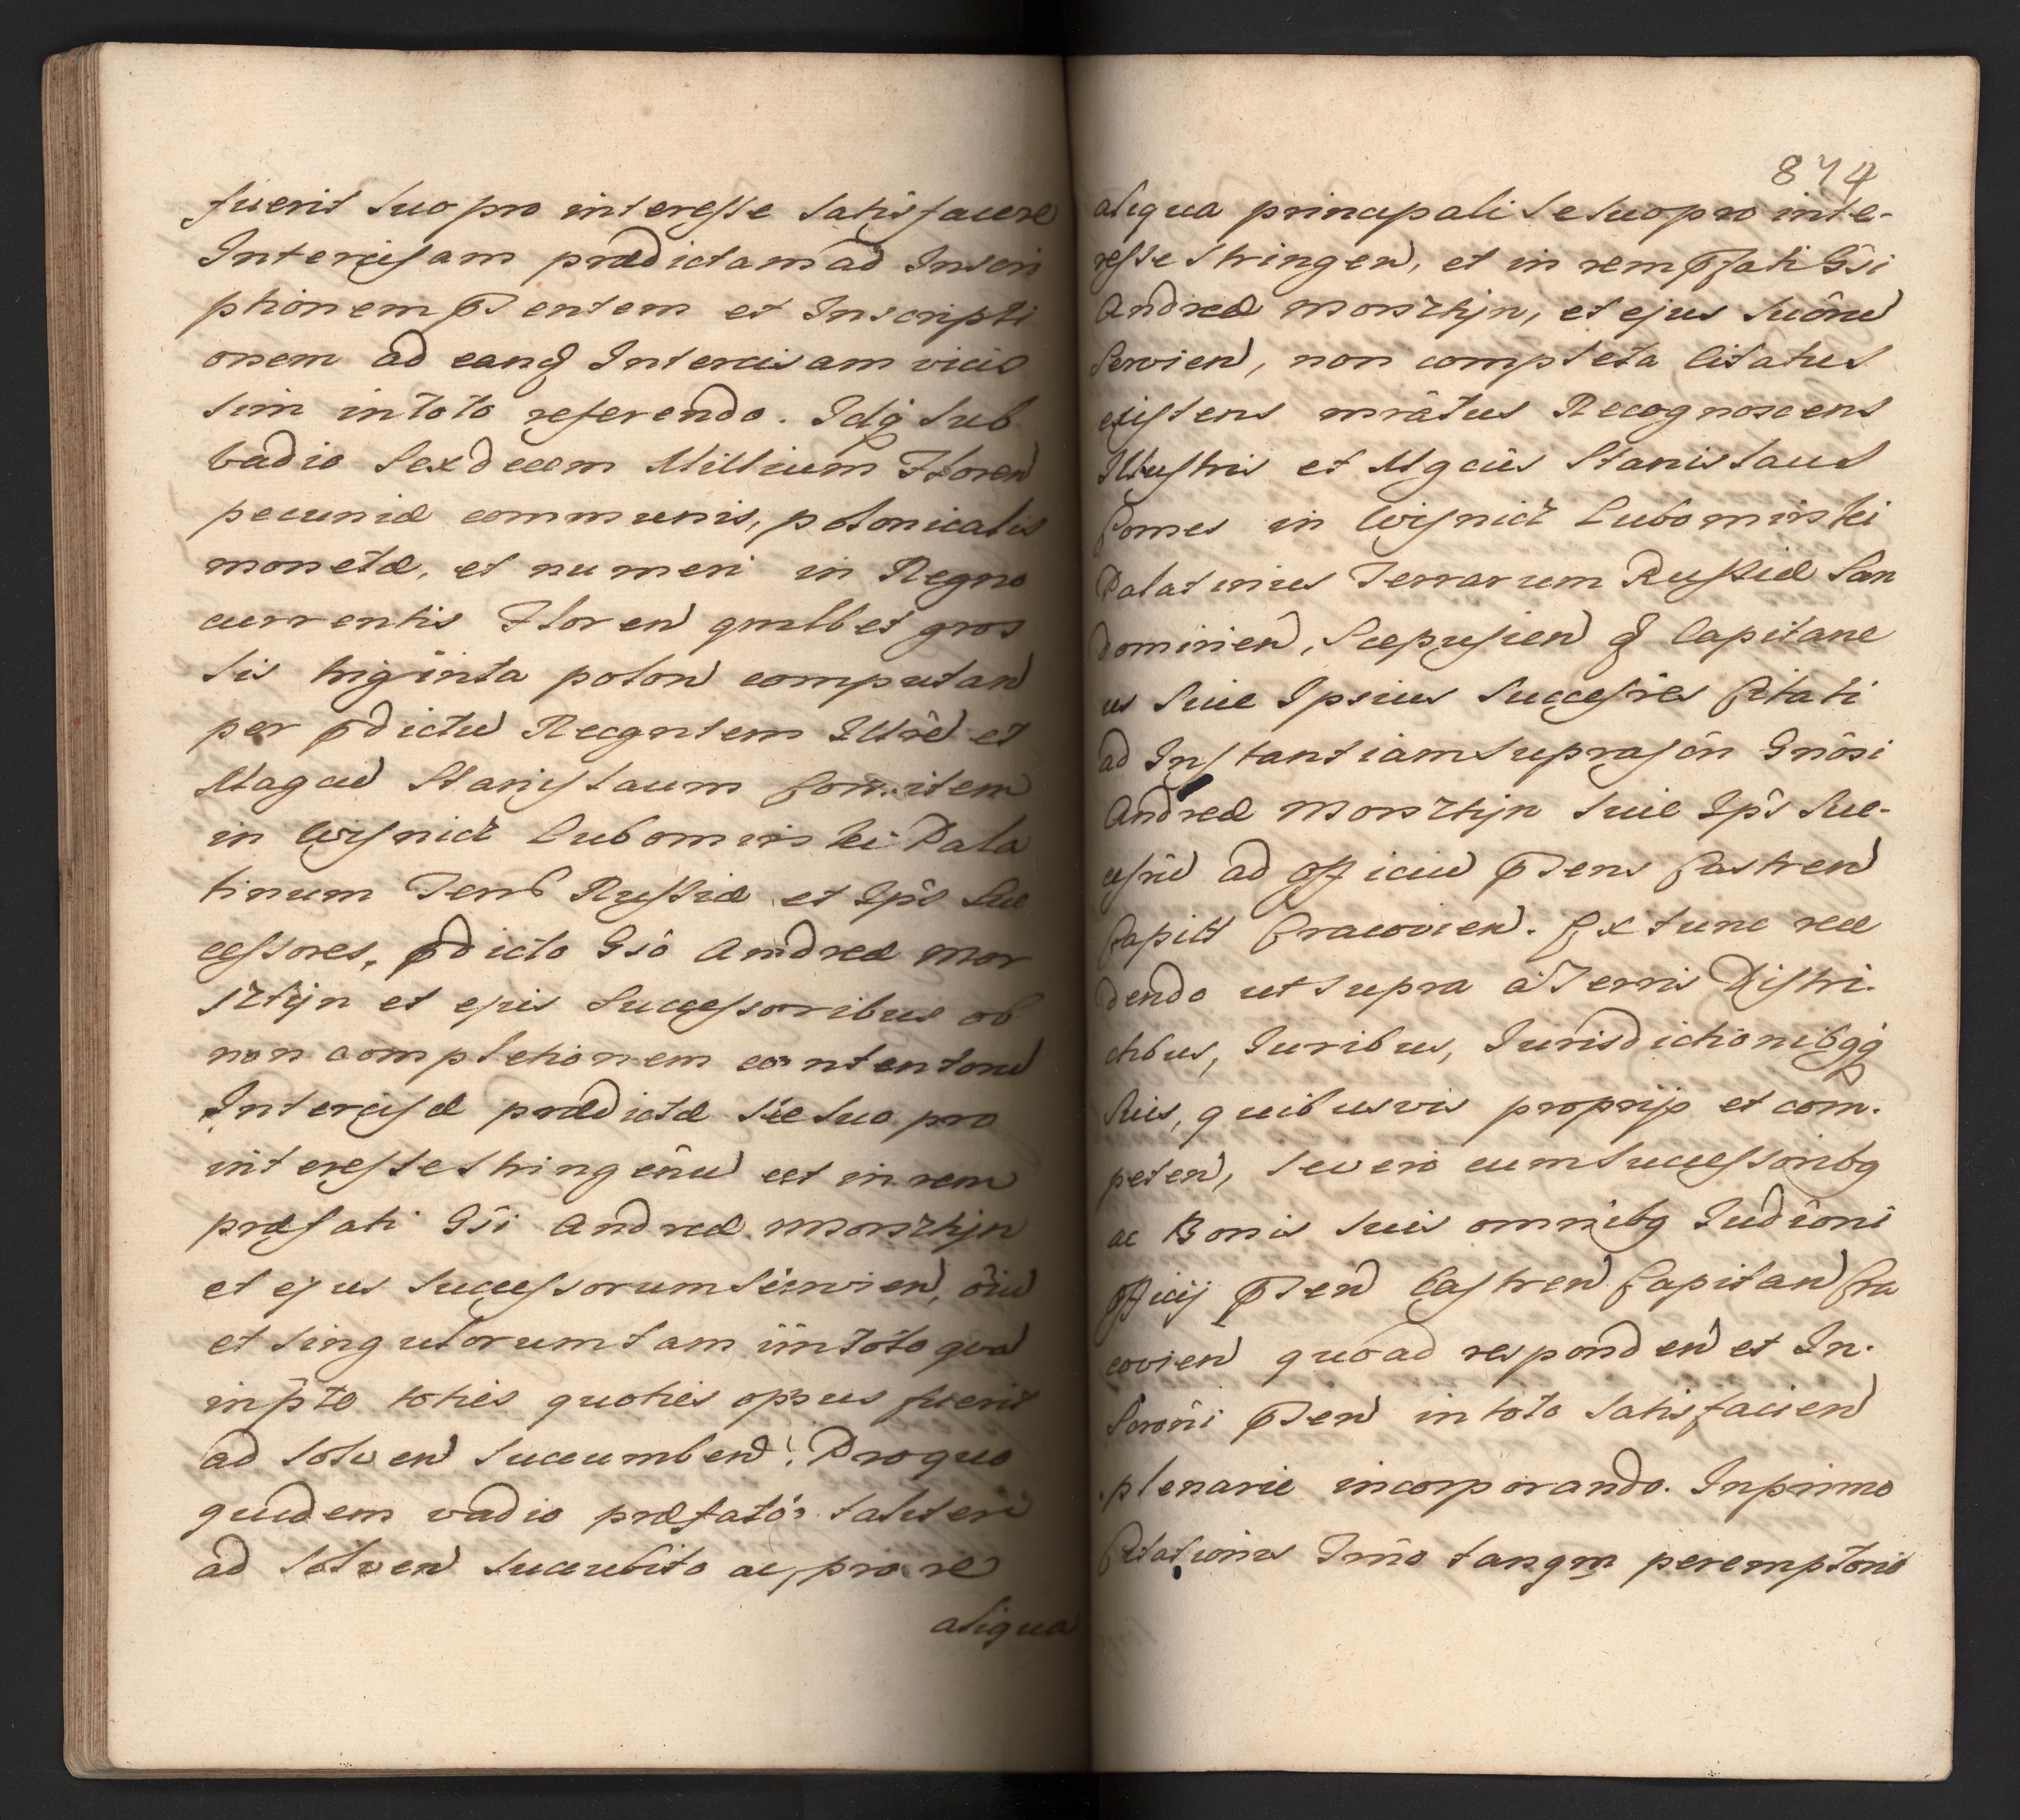 fuerit suo pro interesse satisfacere
Intercisam prædictam ad Inscri
ptionem pntentem et Inscripti
onem ad eandē Intercisam vicis
sim in toto referendo. Idq sub
vadio Sexdecem Millium Floren
pecuniæ communis, polonicalis
monetæ, et numeri in Regno
currentis Floren qmlbet gros
sis triginta polon computan
per pdictū Recgntem Illrē et
Magcū Stanislaum Comitem
in Wisnicz Lubomirski Pala
tinum Terrȓ Russiæ et Ips Suc
cessores, pdicto Gsō Andreæ Mor
sztijn et ejus Successoribus ob
non completionem contentorū
Intercisæ prædictæ se suo pro
interesse stringenū et in rem
præfati Gsi Andreæ Morsztijn
et ejus Successorum servien, oiū
et singulorum tam in toto qua
in pte toties quoties opus fuerit
ad solven succumben. Pro quo
quidem vadio præfato taliter
ad solven succubito ac, pro re
aliqua
874
aliqua principali se suo pro inte-
resse stringen, et in rem pfati Gsi
Andreæ Morsztijn, et ejus Sucōrū
servien, non completa citatus
existens mrātus Recognoscens
Illustris et Mgcūs Stanislaus
Comes in Wisnicz Lubomirski
Palatinus Terrarum Russiæ San
domirien, Scepusien & Capitane
us sive Ipsius Succesres Citati
ad Instantiam suprascn Gnōsi
Andreæ Morsztijn sive Ips Suc-
cesrū ad officiū psens Castren
Capitł Cracovien. Ex tunc rece
dendo ut supra a Terris Distri-
ctibus, Juribus, Jurisdictionibqq
suis, quibusvis proprijs et com-
peten, se vero cum Successoribq
ac Bonis suis omnibq Judiōni
officij psen Castren Capitan Cra
covien quoad responden et In-
scrōni psen in toto satisfacien
plenarie incorporando. In primo
Citationis Trnō tanqm peremptorio